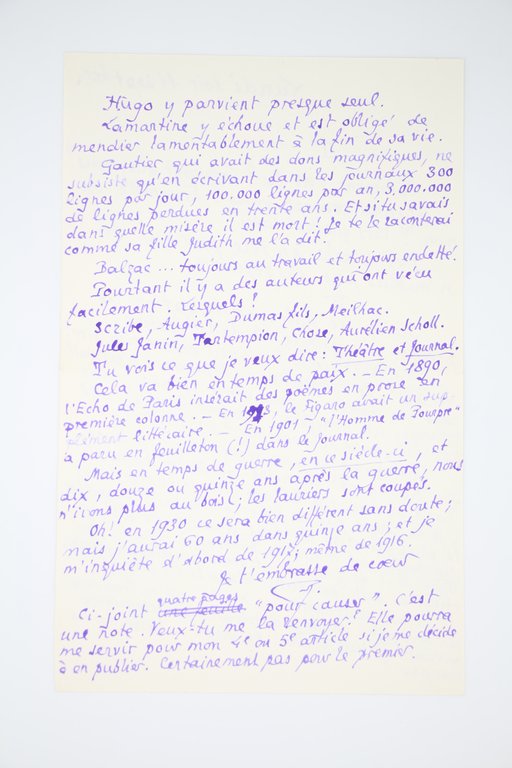 Hugo y parvient presque seul.
Lamartine y échoue et est obligé de
mendier lamentablement à la fin de sa vie.
Gautier qui avait des dons magnifiques, ne
subsiste qu'en écrivant dans les journaux 300
lignes par jour, 100.000 lignes par an, 3.000.000
de lignes perdues en trente ans. Et si tu savais
dans quelle misère il est mort! Je te le raconterai
comme sa fille Judith me l'a dit.
Balzac ... toujours au travail et toujours endetté.
Pourtant il y a des auteurs qui ont vécu
facilement. Lesquels!
Scribe, Augier, Dumas fils, Meilhac.
Jules Janin, Tartempion, Chose, Aurélien Scholl.
Tu vois ce que je veux dire: Théâtre et Journal.
Cela va bien en temps de paix. — En 1890,
l'Echo de Paris insérait des poèmes en prose en
première colonne. — En le Figaro avait un sup-
plément littéraire. — En 1901 — "l'Homme de Pourpre"
a paru en feuilleton (!) dans le Journal.
Mais en temps de guerre, en ce siècle-ci, et
dix, douze ou quinze ans après la guerre, nous
n'irons plus au bois; les lauriers sont coupés.
Oh! en 1930 ce sera bien différent sans doute;
mais j'aurai 60 ans dans quinze ans; et je
m'inquiète d'abord de 1917; même de 1916.
Je t'embrasse de cœur
quatre pages
Ci-joint une feuille "pour causer". C'est
une note. Veux-tu me la renvoyer? Elle pourra
me servir pour mon 4e ou 5e article si je me décide
à en publier. Certainement pas pour le premier.